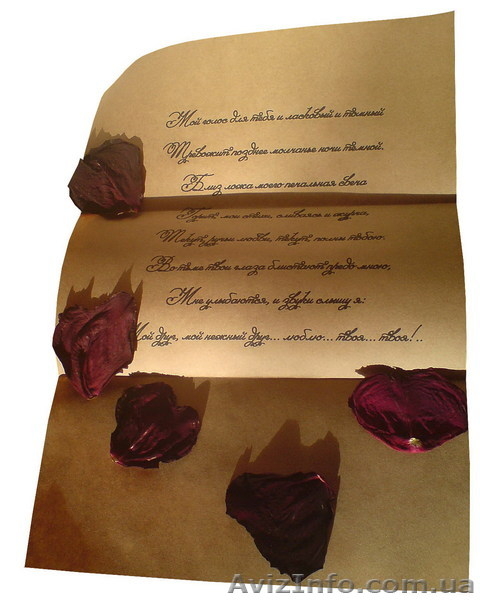 Мой голос для тебя и ласковый и томный
Тревожит позднее молчанье ночи темной.
Близ ложа моего печальная свеча
Горит; мои стихи, сливаясь и журча,
Текут, ручьи любви, текут, полны тобою.
Во тьме твои глаза блистают предо мною,
Мне улыбаются, и звуки слышу я:
Мой друг, мой нежный друг... люблю... твоя... твоя!..
AvizInfo.com.ua